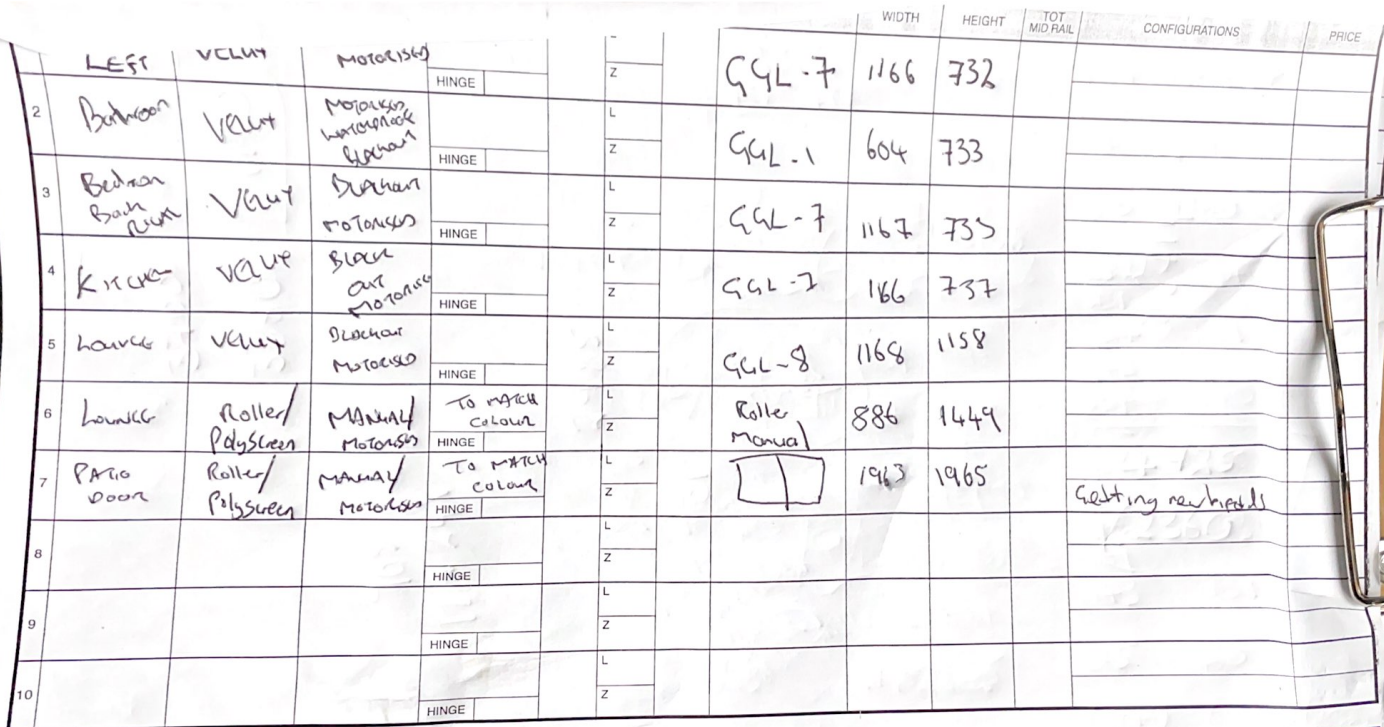 WIDTH HEIGHT TOT MID RAIL CONFIGURATIONS PRICE
LEFT VELUX MOTORISED HINGE Z GGL-7 1166 732
2 Bathroom VELUX MOTORISED WATERPROOF BLACKOUT HINGE L Z GGL-1 604 733
3 Bedroom Back Right VELUX BLACKOUT MOTORISED HINGE L Z GGL-7 1167 733
4 KITCHEN VELUX BLACK OUT MOTORISED HINGE L Z GGL-7 1166 737
5 LOUNGE VELUX BLACKOUT MOTORISED HINGE L Z GGL-8 1168 1158
6 LOUNGE Roller/ PolyScreen MANUAL/ MOTORISED TO MATCH COLOUR HINGE L Z Roller Manual 886 1449
7 PATIO DOOR Roller/ PolyScreen MANUAL/ MOTORISED TO MATCH COLOUR HINGE L Z 1963 1965 Getting new
8 HINGE L Z
9 HINGE L Z
10 HINGE L Z